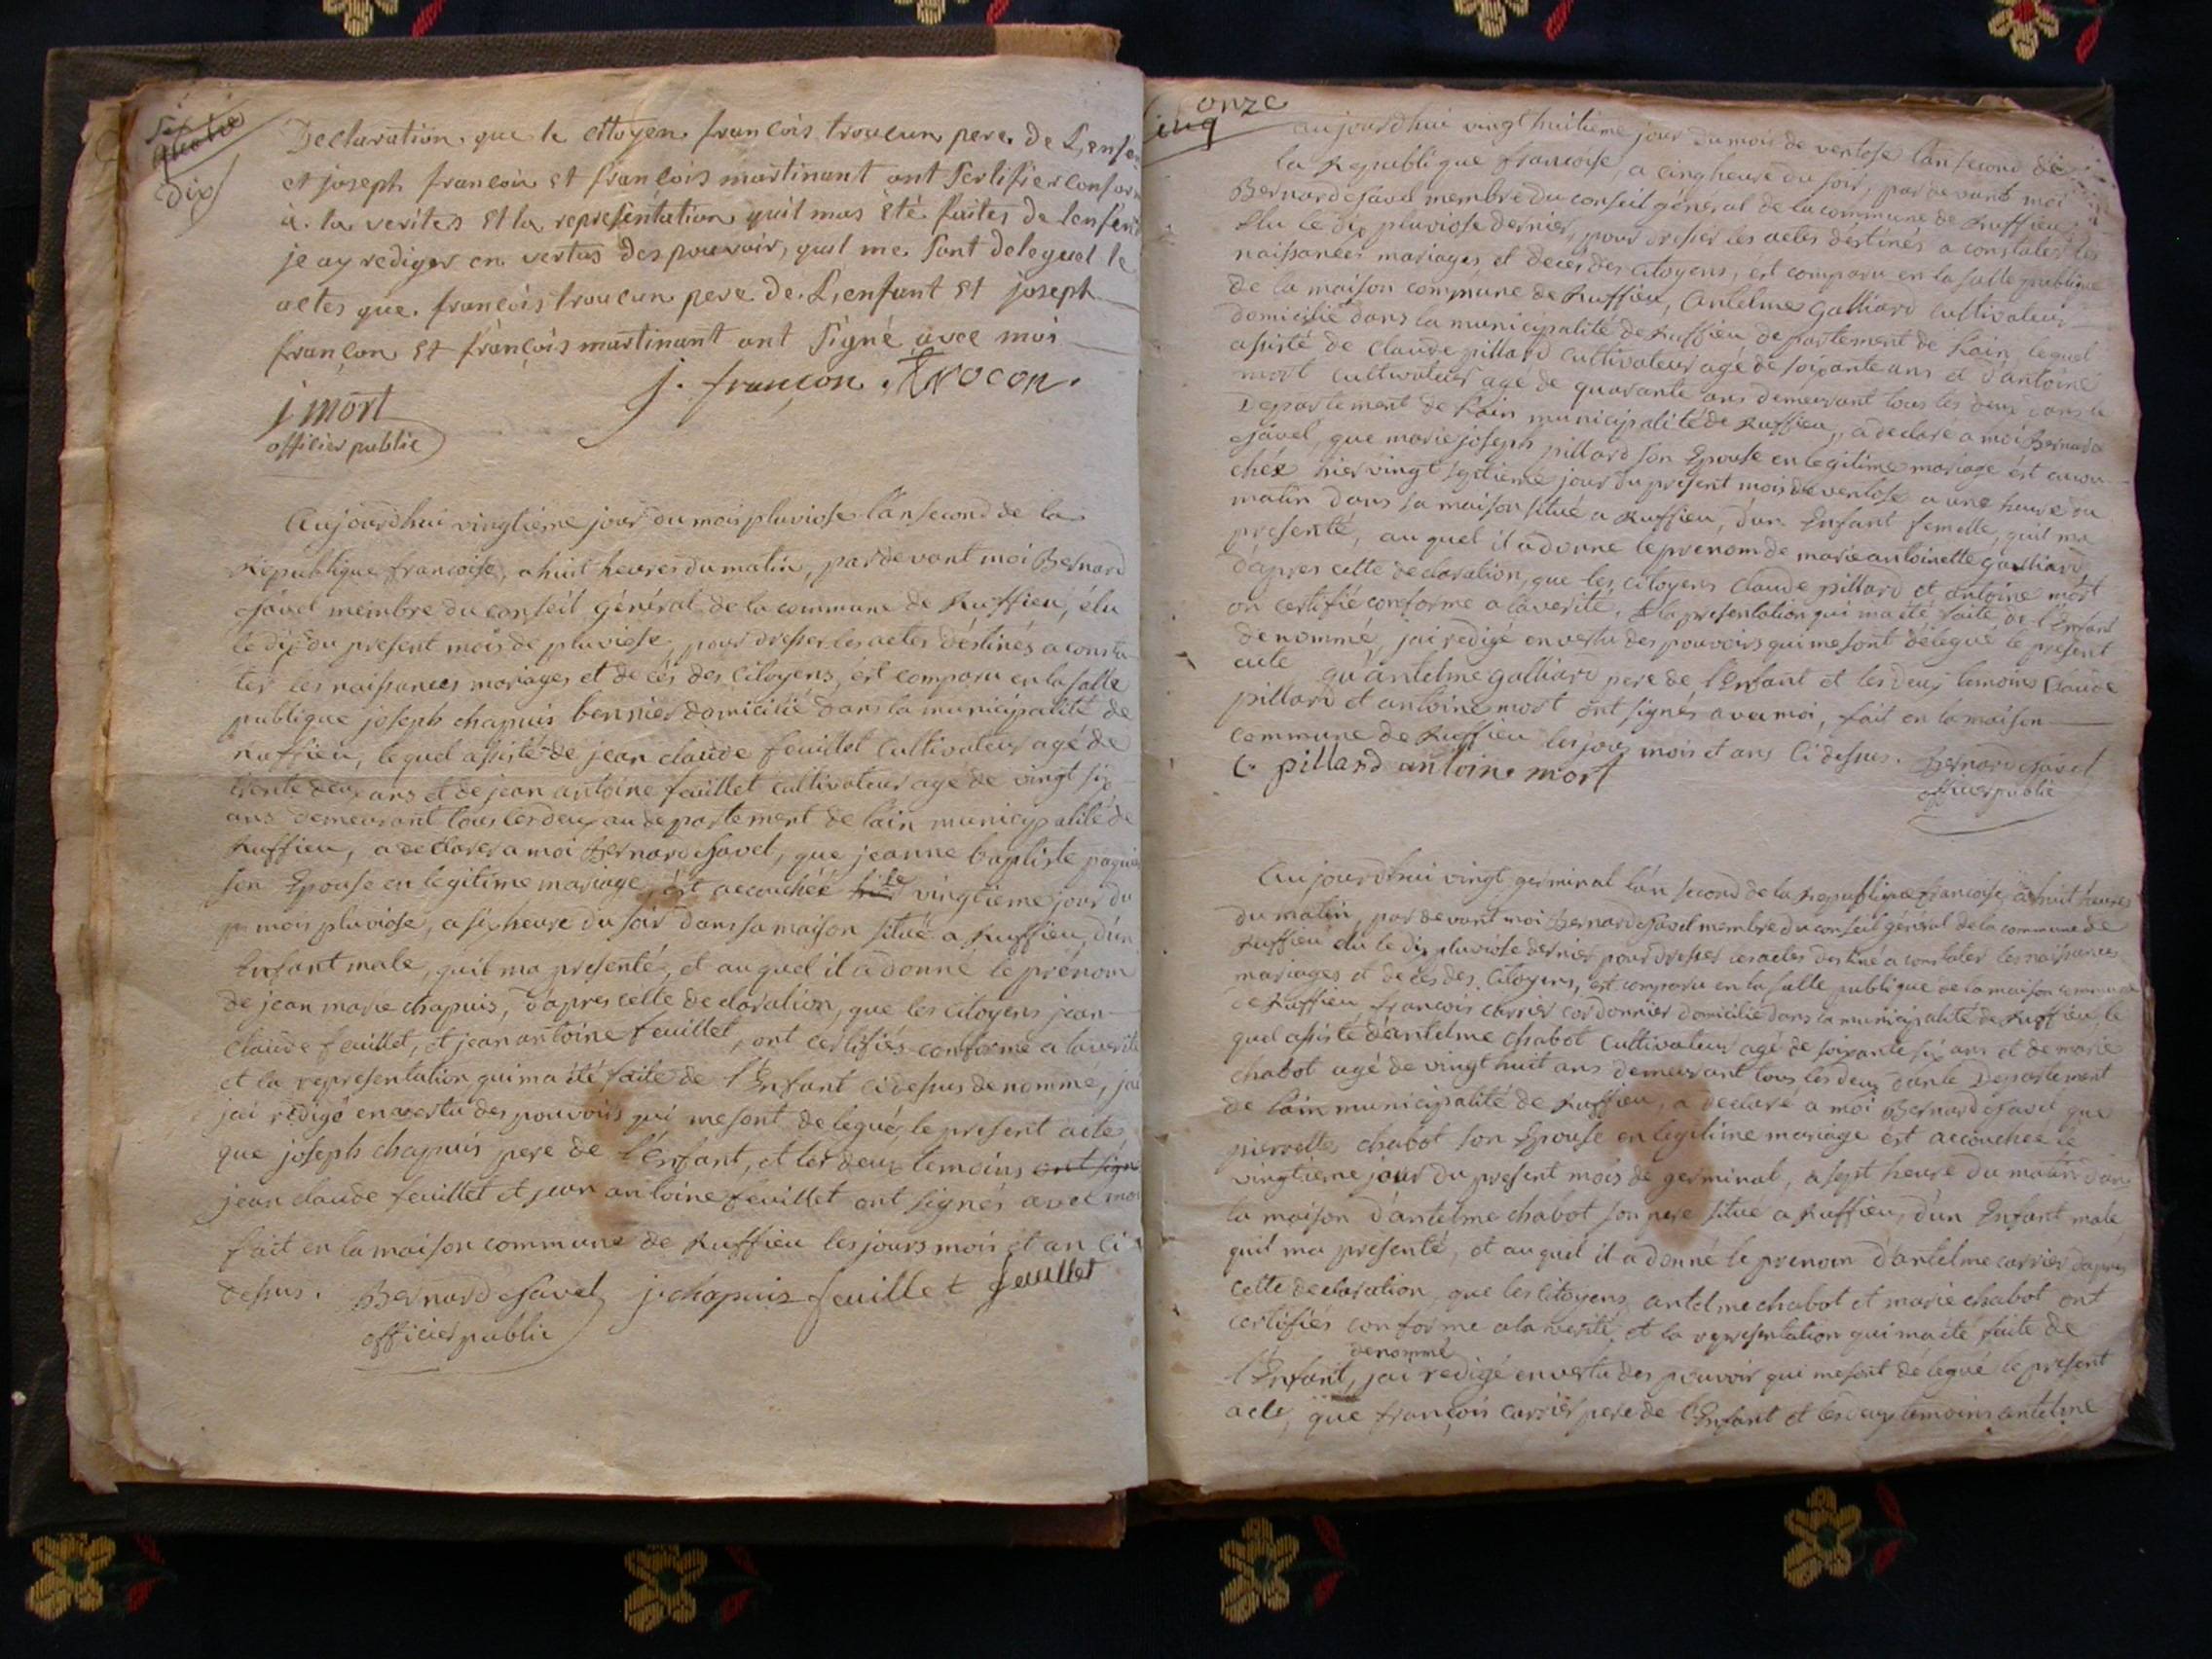 Sept
quatre
dix
Declaration que le citoyen francois troucun pere de L'enfan
et joseph francoin et francois martinant ont Sertifier confor
à la verites et la representation quil mas été faites de lenfen
je ay rediger en vertus des pouvoir, quil me Sont delegued le
actes que francois troucun pere de L'enfant et joseph
françon et françois martinant ont Signé avec moi
j. françon . trocon.
j mort
officier public
Aujourdhui vingtieme jour du mois pluviose l'an second de la
Republique francoise, a huit heures du matin, par devant moi Bernard
Javel membre du conseil général de la commune de Ruffieu, élu
le dix du present mois de pluviose, pour dresser les actes déstinés a consta
ter les naissances mariages et decés des citoyens, est comparu en la salle
publique joseph chapuis bennier domicilié dans la municipalité de
Ruffieu, lequel assisté de jean claude feuillet cultivateur agé de
trente deux ans et de jean antoine feuillet cultivateur agé de vingt six
ans demeurant tous les deux au departement de lain municipalité de
Ruffieu, a declarer a moi Bernard Javel, que jeanne baptiste paquie
son Epouse en legitime mariage, est accouchée le vingtieme jour du
p mois pluviose, a six heure du soir dans sa maison situé a Ruffieu, d'un
Enfant male, quil ma presenté, et auquel il a donné le prénom
de jean marie chapuis, d'apres cette declaration, que les citoyens jean
claude feuillet, et jean antoine feuillet, ont certifiés conforme a la verité
et la representation qui ma été faite de l'Enfant cidessus denommé, jai
jai rédigé en vertu des pouvoirs qui me sont delegués, le present acte
que joseph chapuis pere de l'Enfant, et les deux temoins ont sign
jean claude feuillet et jean antoine feuillet ont signés avec moi
fait en la maison commune de Ruffieu les jours mois et an ci
dessus. Bernard Javel j. chapuis feuillet feuillet
officier public
onze
cinq
aujourdhui vingt huitieme jour du mois de ventose l'an second de
la Republique francoise, a cinq heure du soir, par devant moi
Bernard Javel membre du conseil général de la commune de Ruffieu
élu le dix pluviose dernier, pour dresser les actes déstinés a constater les
naissances mariages et deces des citoyens, est comparu en la salle publique
de la maison commune de Ruffieu, Antelme Galliard cultivateur
domicilié dans la municipalité de Ruffieu departement de Lain, lequel
assisté de claude pillard cultivateur agé de soixante ans et d'antoine
mort cultivateur agé de quarante ans demeurant tous les deux dans le
Departement de Lain municipalité de Ruffieu, a declaré a moi Bernard
Javel, que marie joseph pillard son Epouse en legitime mariage est accou
chée hier vingt septieme jour du present mois de ventose a une heure du
matin dans sa maison situé a Ruffieu, d'un Enfant femelle, quil ma
presenté, auquel il a donné le prenom de marie antoinette galliard
d'apres cette declaration, que les citoyens claude pillard et antoine mort
on certifié conforme a la verité, & la presentation qui ma été faite de l'Enfant
denommé, jai redigé en vertu des pouvoirs qui me sont delegué le present
acte qu'antelme galliard pere de l'Enfant et les deux temoins Claude
pillard et antoine mort ont signés avec moi, fait en la maison
commune de Ruffieu les jour mois et ans ci dessus. Bernard Javel
C. pillard antoine mort officier public
Aujourdhui vingt germinal l'an second de la Republique francoise, a huit heures
du matin, par devant moi Bernard Javel membre du conseil général de la commune de
Ruffieu élu le dix pluviose dernier pour dresser les actes destiné a constater les naissances
mariages et deces des citoyens, est comparu en la salle publique de la maison commune
de Ruffieu, francois carrier cordonnier domicilié dans la municipalité de Ruffieu, le
quel assisté d'antelme chabot cultivateur agé de soixante six ans et de marie
chabot agé de vingt huit ans demeurant tous les deux dans le Departement
de lain municipalité de Ruffieu, a declaré a moi Bernard Javel que
pierrette chabot son Epouse en legitime mariage est accouchée le
vingtieme jour du present mois de germinal, a sept heure du matin dans
la maison d'antelme chabot son pere situé a Ruffieu, d'un Enfant male
quil ma presenté, et auquel il a donné le prenom d'antelme carrier d'apres
cette declaration, que les citoyens antelme chabot et marie chabot ont
certifiés conforme a la verité, et la representation qui ma été faite de
denommé
l'Enfant, jai redigé en vertu des pouvoir qui me sont délegué le present
acte, que françois carrier pere de l'Enfant et les deux temoins antelme